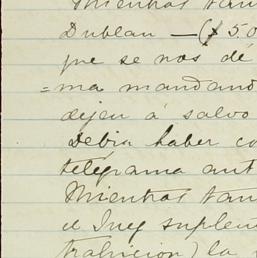 Mientras tan
Dublan — ($50
que se nos dé
= ma mandand
dejen á salvo
Debia haber co
telegrama ant
Mientras tan
el Juez suplen